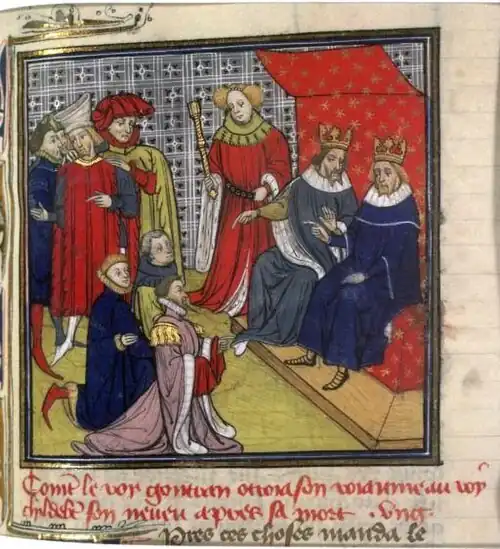 Com̃ le roy gontran ottroia son roiaume au roy
childeb̃t son neveu apres sa mort . Ung
Pres ces choses manda le